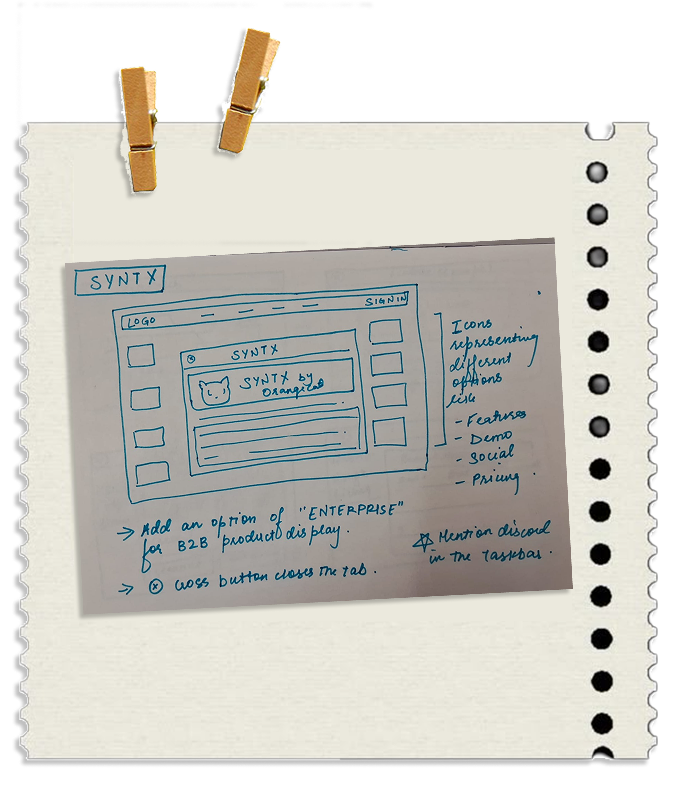 SYNTX
LOGO
SIGNIN
SYNTX
SYNTX by
Orangicat
Icons
representing
different
options
like
- Features
- Demo
- Social
- Pricing
→ Add an option of "ENTERPRISE"
for B2B product display.
→ ⓧ cross button closes the tab.
☆ Mention discord
in the Taskbar.